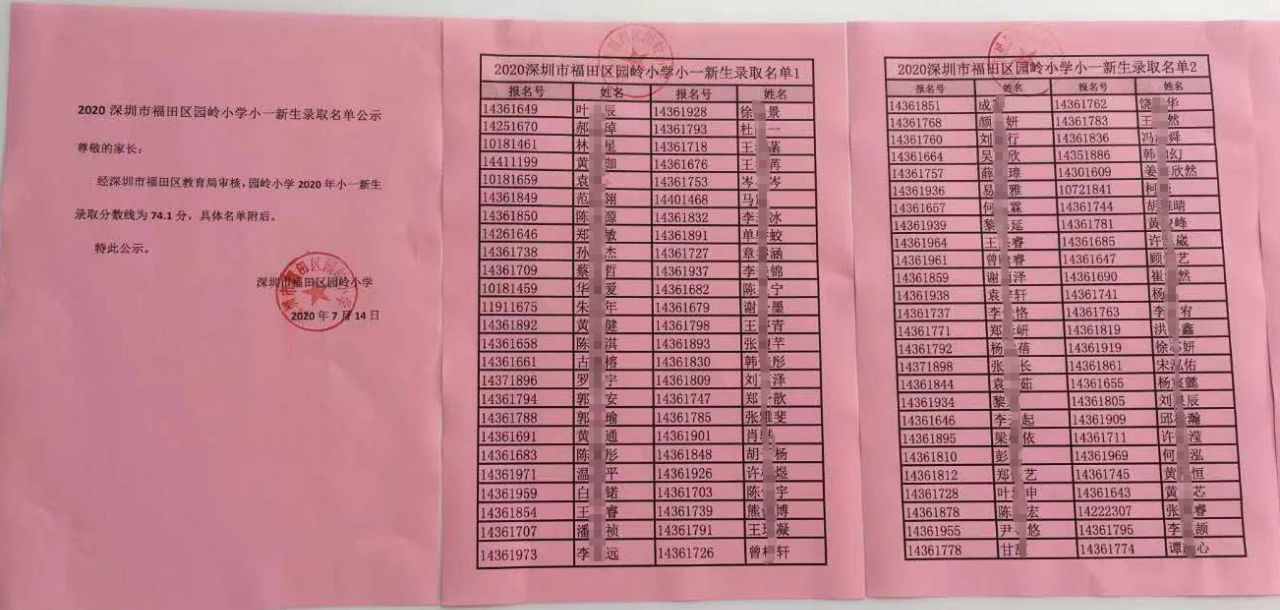 2020深圳市福田区园岭小学小一新生录取名单公示
尊敬的家长：
经深圳市福田区教育局审核，园岭小学2020年小一新生
录取分数线为74.1分，具体名单附后。
特此公示。
深圳市福田区园岭小学
2020年7月14日
2020深圳市福田区园岭小学小一新生录取名单1
报名号 姓名 报名号 姓名
14361649 叶 辰 14361928 徐 景
14251670 郝 14361793 杜 一
10181461 林 星 14361718 王 菡
14411199 黄 14361676 王 苒
10181659 袁 14361753 岑 岑
14361849 范 翔 14401468 马
14361850 陈 源 14361832 李 冰
14261646 郑 敏 14361891 单 蛟
14361738 孙 杰 14361727 章 涵
14361709 蔡 哲 14361937 李 锦
10181459 华 爱 14361682 陈 宁
11911675 朱 年 14361679 谢 墨
14361892 黄 健 14361798 王 青
14361658 陈 淇 14361893 张 芊
14361661 古 榕 14361830 韩 彤
14371896 罗 宇 14361809 刘 泽
14361794 郭 安 14361747 郑 歆
14361788 郭 瑜 14361785 张 斐
14361691 黄 通 14361901 肖
14361683 陈 彤 14361848 胡 杨
14361971 温 平 14361926 许 煜
14361959 白 锘 14361703 陈 宇
14361854 王 睿 14361739 熊 博
14361707 潘 祯 14361791 王 凝
14361973 李 远 14361726 曾 轩
2020深圳市福田区园岭小学小一新生录取名单2
报名号 姓名 报名号 姓名
14361851 成 14361762 饶 华
14361768 颜 妍 14361783 王 然
14361760 刘 行 14361836 冯 舜
14361664 吴 欣 14351886 韩 幻
14361757 薛 璋 14301609 姜 欣然
14361936 易 雅 10721841 柯
14361657 何 霖 14361744 胡 晴
14361939 黎 延 14361781 黄 峰
14361964 王 睿 14361685 许 崴
14361961 曾 睿 14361647 顾 艺
14361859 谢 泽 14361690 崔 然
14361938 袁 轩 14361741 杨
14361737 李 恪 14361763 李 宥
14361771 郑 妍 14361819 洪 鑫
14361792 杨 蓓 14361919 徐 妍
14371898 张 长 14361861 宋 佑
14361844 袁 茹 14361655 杨 懿
14361934 黎 14361805 刘 辰
14361646 李 起 14361909 邱 瀚
14361895 梁 依 14361711 许 滢
14361810 彭 14361969 何 泓
14361812 郑 艺 14361745 黄 恒
14361728 叶 申 14361643 黄 芯
14361878 陈 宏 14222307 张 睿
14361955 尹 悠 14361795 李 颉
14361778 甘 14361774 谭 心